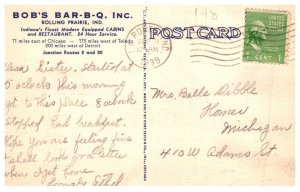 BOB'S BAR-B-Q, INC.
ROLLING PRAIRIE, IND.
Indiana's Finest Modern Equipped CABINS
and RESTAURANT. 24 Hour Service.
71 miles east of Chicago — 175 miles west of Toledo
200 miles west of Detroit
Junction Routes 2 and 20
Dear Sister, Started at
5 o'clock this morning
got to this place 8 o'clock
stopped had breakfast.
Hope you are feeling fine
I shall look for a letter
when I get home
Ethel
198
POST CARD
1 CENT 1
Mrs. Belle Dibble
Homer
Michigan
410 W Adams St